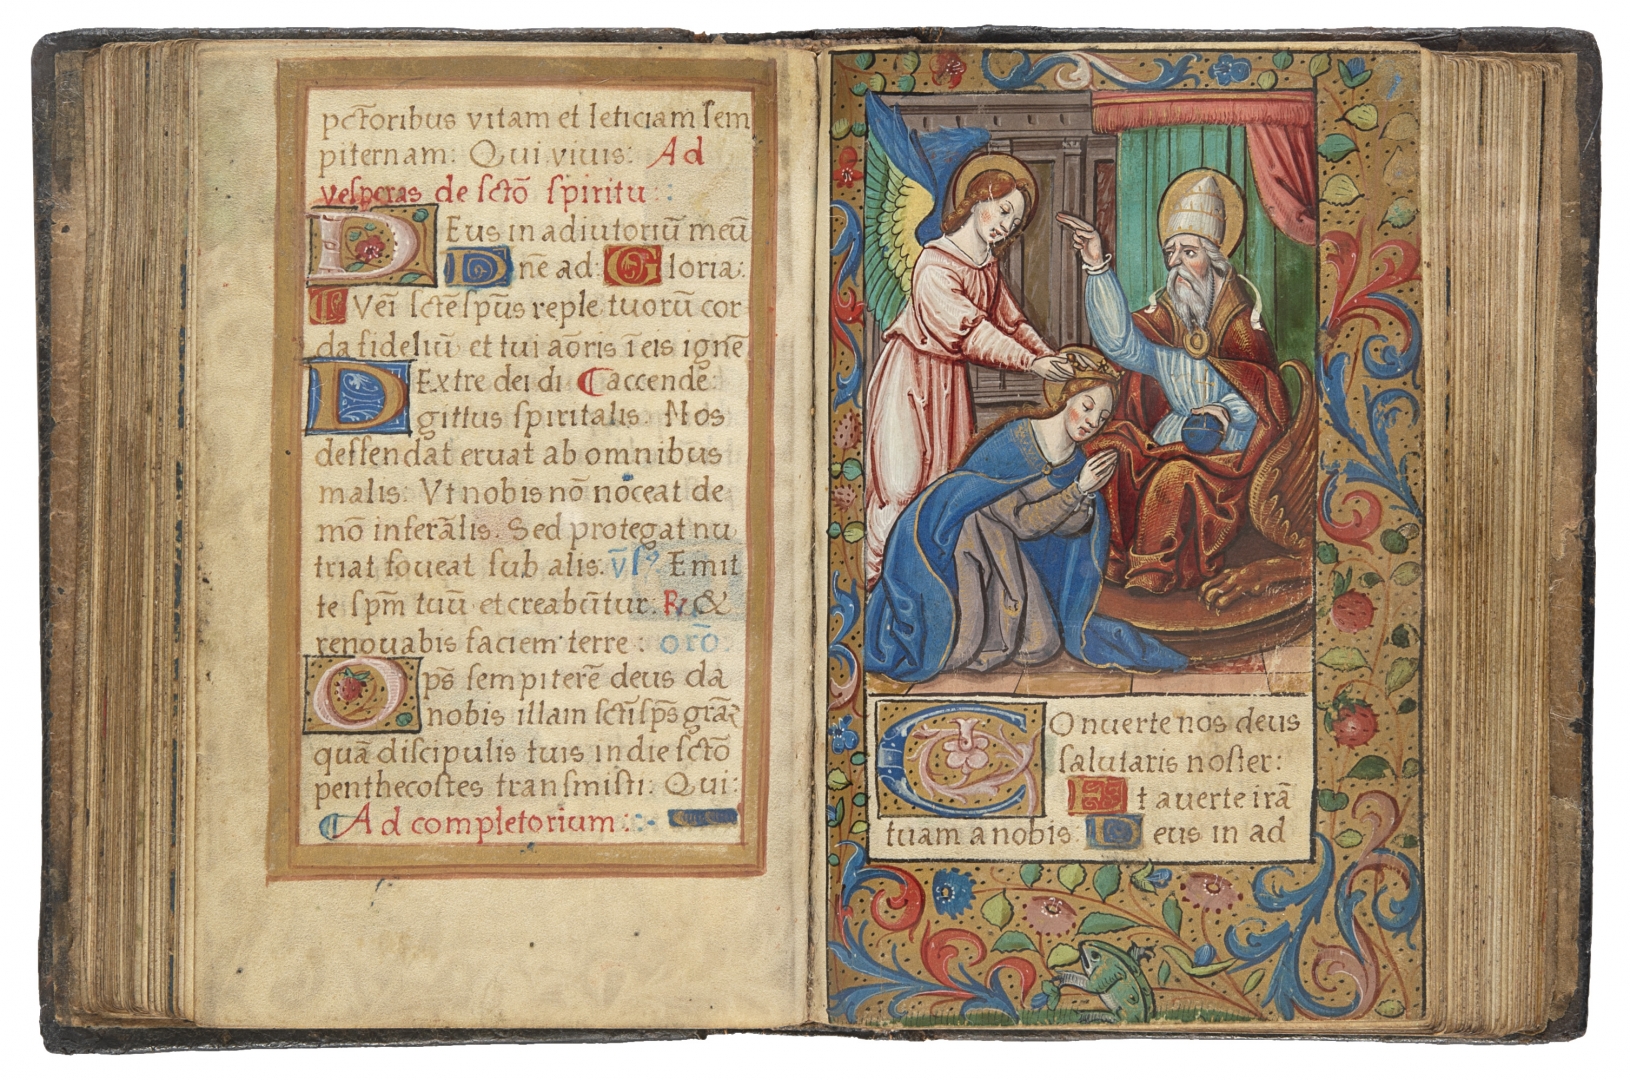 pctoribus vitam et leticiam sem
piternam: Qui viuis: Ad
vesperas de sctō spiritu:
DEus in adiutoriū meū
Dne ad: Gloria:
Veī sctē spūs reple tuorū cor
da fideliū et tui aōris ī eis ignē
DExtre dei di Caccende:
gittus spiritalis. Nos
deffendat eruat ab omnibus
malis: Vt nobis nō noceat de
mō inferālis. Sed protegat nu
triat foueat sub alis. vs̄ Emit
te spm̄ tuū et creabūtur. R &
renouabis faciem terre: orō
Opš sempiterē deus da
nobis illam sctī spš grāz
quā discipulis tuis in die sctō
penthecostes transmisti: Qui:
Ad completorium:
COnuerte nos deus
salutaris noster:
Et auerte irā
tuam a nobis. Deus in ad